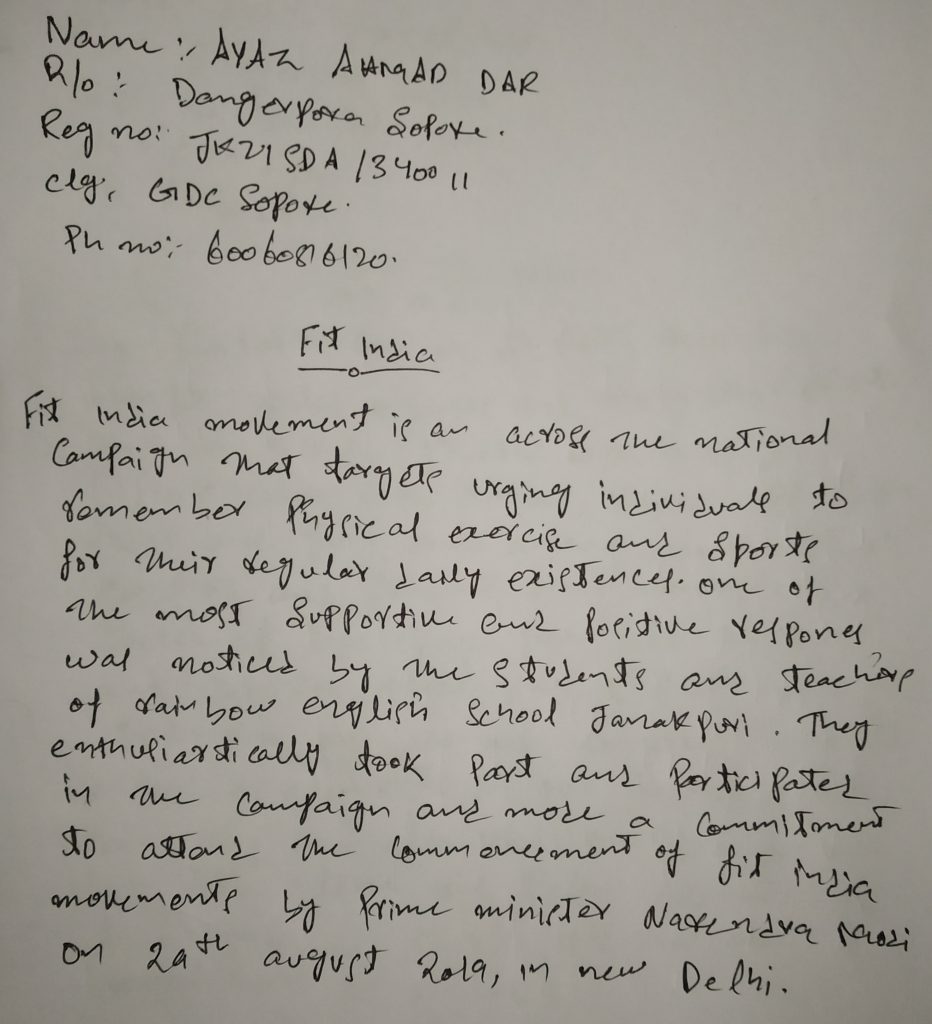 Name :- AYAZ AHMAD DAR
R/o :- Dangerpora Sopore.
Reg no:- JK21SDA1340011
clg, GDC Sopore.
Ph no:- 6006086120.
Fit India
Fit india movement is an across the national
Campaign that targets urging individuals to
remember Physical exercise and sports
for their regular daily existences. one of
the most supportive and positive respones
was noticed by the students and teachers
of rainbow english school Janakpuri. They
enthusiastically took part and participated
in the campaign and made a commitment
to attend the commencement of fit india
movements by prime minister Narendra modi
on 29th august 2019, in new Delhi.